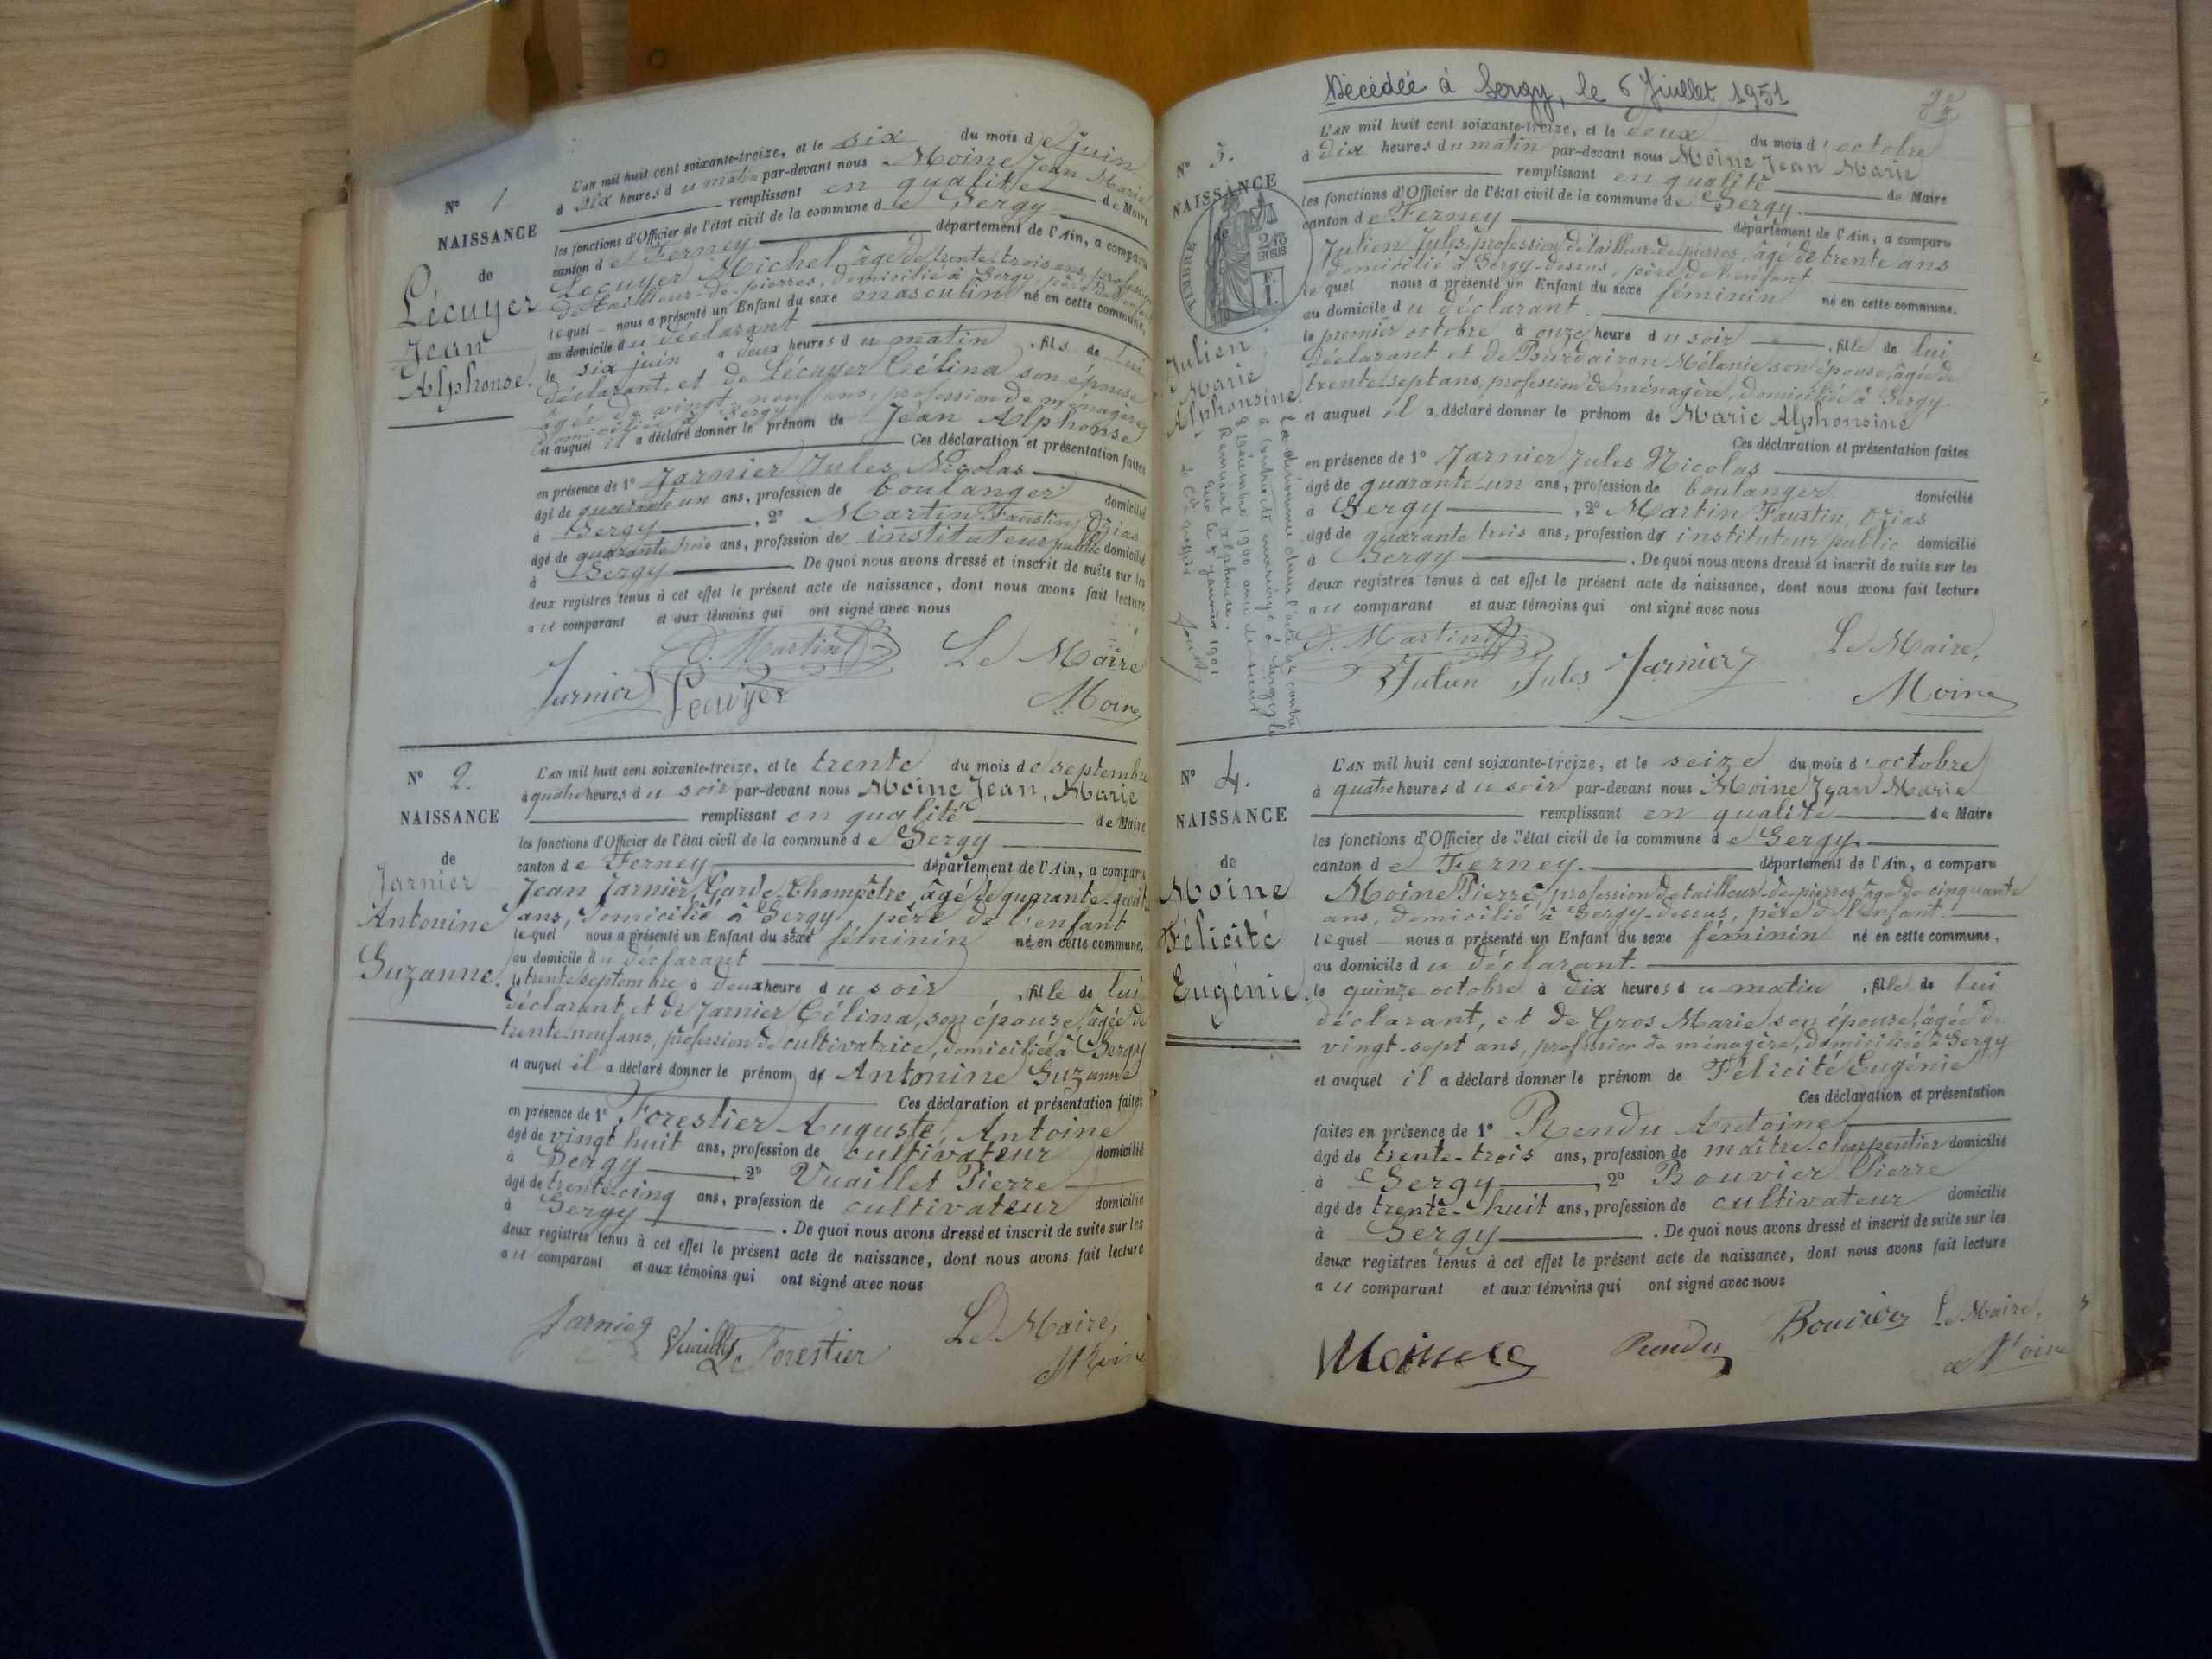 N° 1
NAISSANCE
de
Lécuyer
Jean
Alphonse.
L'AN mil huit cent soixante-treize, et le six du mois de juin
à six heures du matin par-devant nous Moine Jean Marie
remplissant en qualité de Maire
les fonctions d'Officier de l'état civil de la commune de Sergy
canton de Ferney département de l'Ain, a comparu
Lécuyer Michel, âgé de trente-trois ans, profession
de tailleur-de-pierres, domicilié à Sergy, père de l'enfant
lequel nous a présenté un Enfant du sexe masculin né en cette commune,
au domicile du déclarant
le six juin à deux heures du matin, fils de lui
déclarant, et de Lécuyer Célina son épouse
âgée de vingt neuf ans, profession de ménagère
domiciliée à Sergy
et auquel il a déclaré donner le prénom de Jean Alphonse
Ces déclaration et présentation faites
en présence de 1° Jarnier Jules Nicolas
âgé de quarante un ans, profession de boulanger domicilié
à Sergy, 2° Martin Faustin, Ozias
âgé de quarante trois ans, profession de instituteur public domicilié
à Sergy. De quoi nous avons dressé et inscrit de suite sur les
deux registres tenus à cet effet le présent acte de naissance, dont nous avons fait lecture
au comparant et aux témoins qui ont signé avec nous
O. Martin Le Maire
Jarnier Lécuyer Moine
N° 2.
NAISSANCE
de
Jarnier
Antonine
Suzanne.
L'AN mil huit cent soixante-treize, et le trente du mois de septembre
à quatre heures du soir par-devant nous Moine Jean, Marie
remplissant en qualité de Maire
les fonctions d'Officier de l'état civil de la commune de Sergy
canton de Ferney département de l'Ain, a comparu
Jean Jarnier, Garde-Champêtre, âgé de quarante-quatre
ans, domicilié à Sergy, père de l'enfant
lequel nous a présenté un Enfant du sexe féminin né en cette commune,
au domicile du déclarant
le trente septembre à deux heure du soir, fille de lui
déclarant, et de Jarnier Célina, son épouse, âgée de
trente-neuf ans, profession de cultivatrice, domiciliée à Sergy
et auquel il a déclaré donner le prénom de Antonine Suzanne
Ces déclaration et présentation faites
en présence de 1° Forestier Auguste, Antoine
âgé de vingt huit ans, profession de cultivateur domicilié
à Sergy, 2° Vuaillet Pierre
âgé de trente-cinq ans, profession de cultivateur domicilié
à Sergy. De quoi nous avons dressé et inscrit de suite sur les
deux registres tenus à cet effet le présent acte de naissance, dont nous avons fait lecture
au comparant et aux témoins qui ont signé avec nous
Jarnier Vuaillet Forestier Le Maire,
Moine
Décédée à Sergy, le 6 Juillet 1951
N° 3.
NAISSANCE
de
TIMBRE
2/10
EN SUS
Julien
Marie
Alphonsine.
La dénommée dans l'acte ci-contre
a contracté mariage à Sergy le
8 Décembre 1900 avec le sieur
Sergy le 7 janvier 1901
L'AN mil huit cent soixante-treize, et le deux du mois d'octobre
à dix heures du matin par-devant nous Moine Jean Marie
remplissant en qualité de Maire
les fonctions d'Officier de l'état civil de la commune de Sergy
canton de Ferney département de l'Ain, a comparu
Julien Jules, profession de tailleur-de-pierres, âgé de trente ans
domicilié à Sergy-dessus, père de l'enfant
lequel nous a présenté un Enfant du sexe féminin né en cette commune,
au domicile du déclarant.
le premier octobre à onze heure du soir, fille de lui
déclarant et de Burdairon Mélanie son épouse, âgée de
trente-sept ans, profession de ménagère, domiciliée à Sergy
et auquel il a déclaré donner le prénom de Marie Alphonsine
Ces déclaration et présentation faites
en présence de 1° Jarnier Jules Nicolas
âgé de quarante-un ans, profession de boulanger domicilié
à Sergy, 2° Martin Faustin, Ozias
âgé de quarante trois ans, profession de instituteur public domicilié
à Sergy. De quoi nous avons dressé et inscrit de suite sur les
deux registres tenus à cet effet le présent acte de naissance, dont nous avons fait lecture
au comparant et aux témoins qui ont signé avec nous
O. Martin Le Maire,
Julien Jules Jarnier Moine
N° 4.
NAISSANCE
de
Moine
Félicité
Eugénie.
L'AN mil huit cent soixante-treize, et le seize du mois d'octobre
à quatre heures du soir par-devant nous Moine Jean Marie
remplissant en qualité de Maire
les fonctions d'Officier de l'état civil de la commune de Sergy
canton de Ferney. département de l'Ain, a comparu
Moine Pierre, profession de tailleur-de-pierres, âgé de cinquante
ans, domicilié à Sergy-dessus, père de l'enfant.
lequel nous a présenté un Enfant du sexe féminin né en cette commune,
au domicile du déclarant.
le quinze octobre à dix heures du matin, fille de lui
déclarant, et de Gros Marie son épouse, âgée de
vingt-sept ans, profession de ménagère, domiciliée à Sergy
et auquel il a déclaré donner le prénom de Félicité Eugénie
Ces déclaration et présentation
faites en présence de 1° Rendu Antoine
âgé de trente-trois ans, profession de maître-charpentier domicilié
à Sergy, 2° Bouvier Pierre
âgé de trente-huit ans, profession de cultivateur domicilié
à Sergy. De quoi nous avons dressé et inscrit de suite sur les
deux registres tenus à cet effet le présent acte de naissance, dont nous avons fait lecture
au comparant et aux témoins qui ont signé avec nous
Moine Rendu Bouvier Le Maire,
Moine